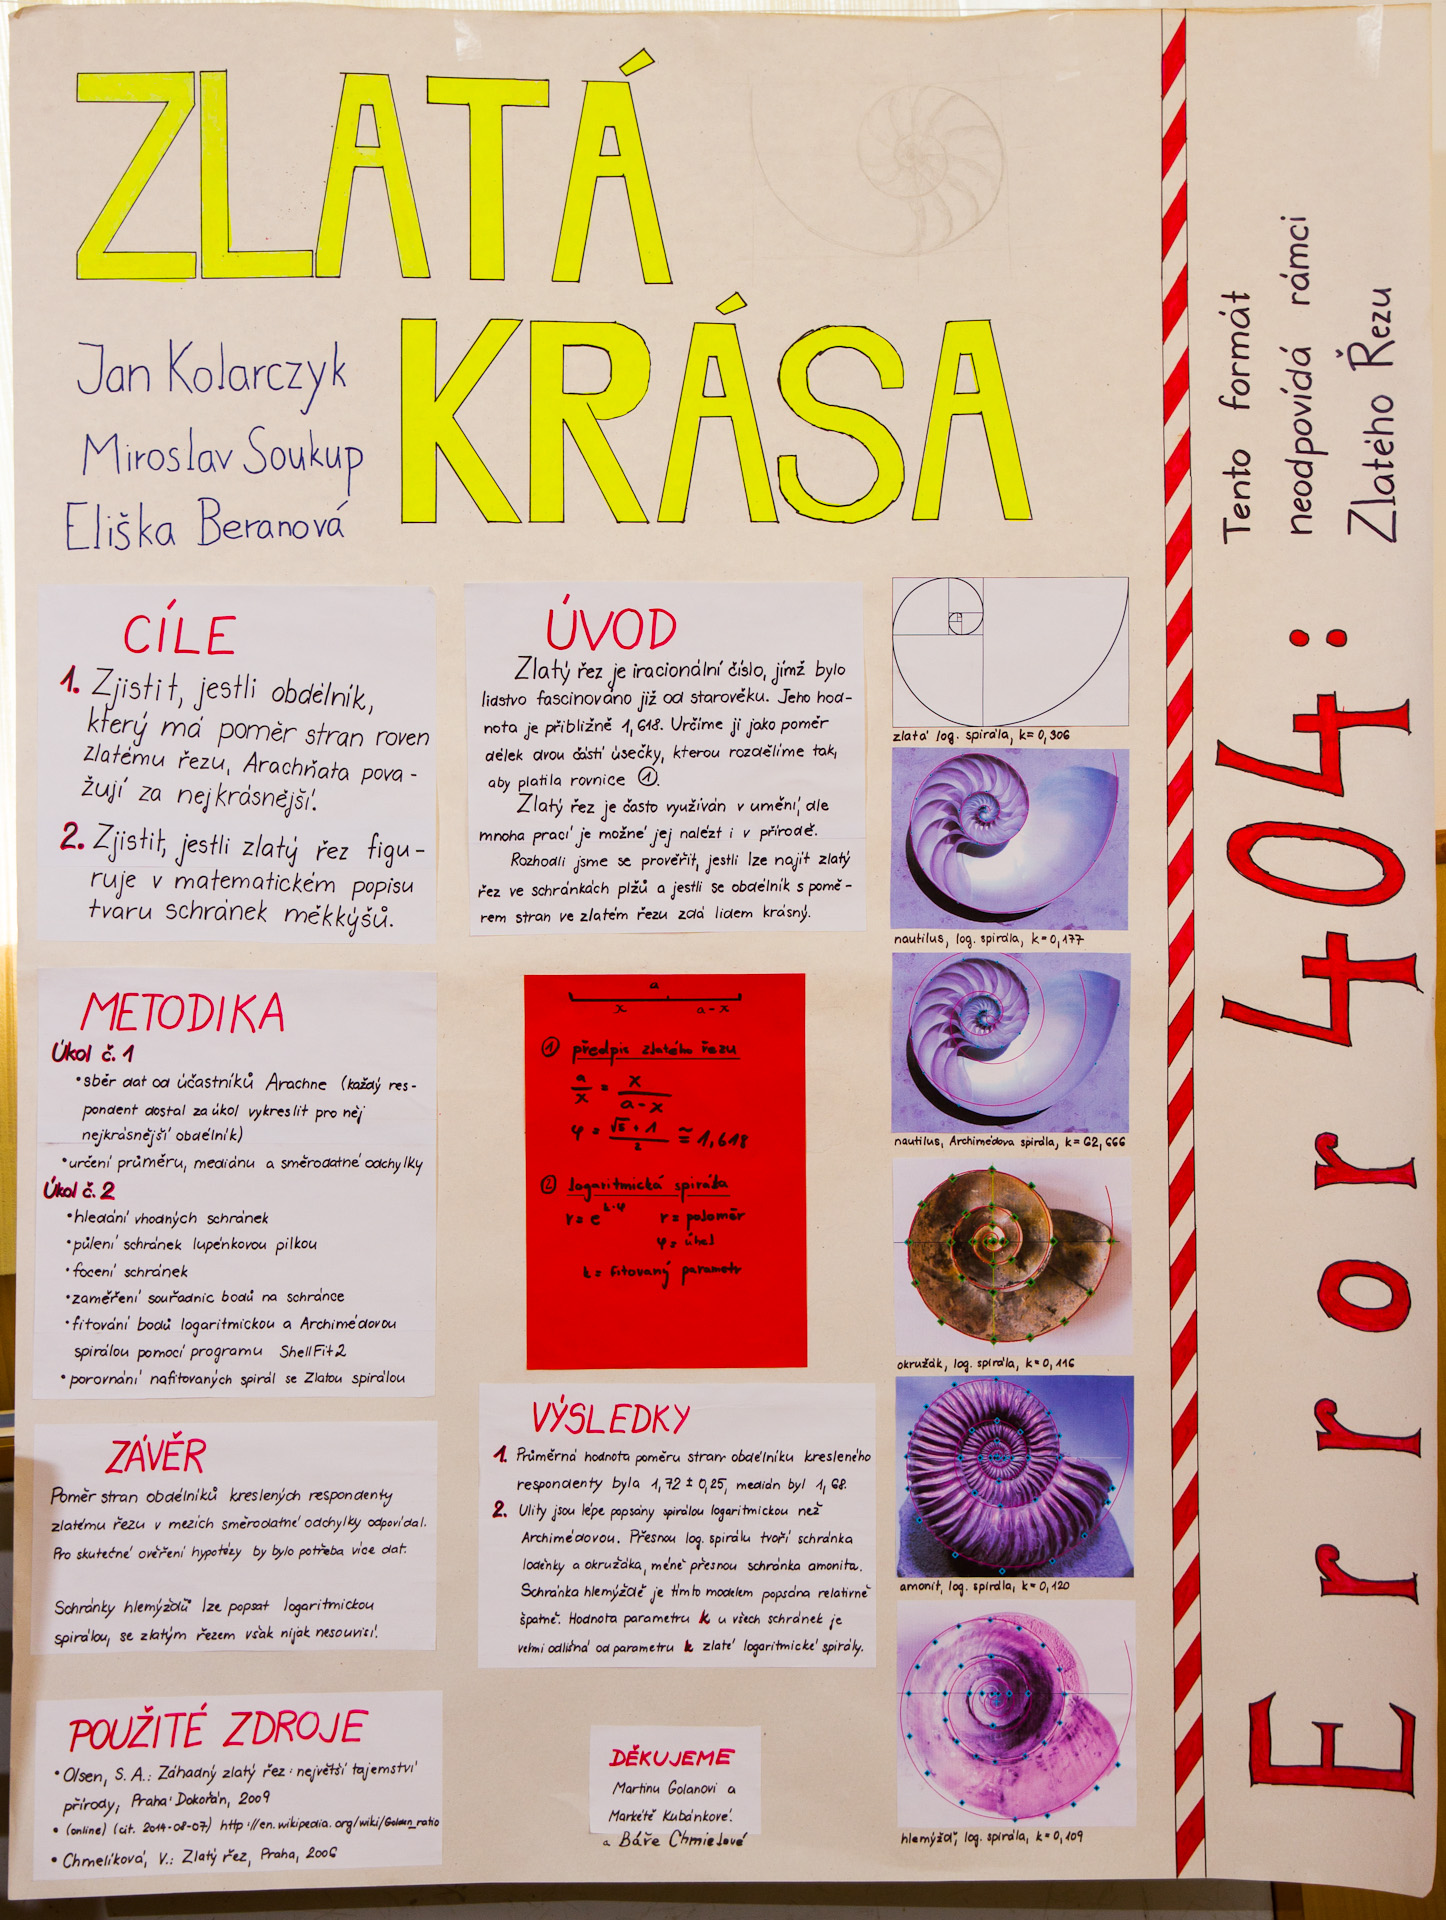 ZLATÁ
KRÁSA
Jan Kolarczyk
Miroslav Soukup
Eliška Beranová
CÍLE
1. Zjistit, jestli obdélník,
který má poměr stran roven
zlatému řezu, Arachňata pova-
žují za nejkrásnější.
2. Zjistit, jestli zlatý řez figu-
ruje v matematickém popisu
tvaru schránek měkkýšů.
METODIKA
Úkol č. 1
• sběr dat od účastníků Arachne (každý res-
pondent dostal za úkol vykreslit pro něj
nejkrásnější obdélník)
• určení průměru, mediánu a směrodatné odchylky
Úkol č. 2
• hledání vhodných schránek
• půlení schránek lupénkovou pilkou
• focení schránek
• zaměření souřadnic bodů na schránce
• fitování bodů logaritmickou a Archimédovou
spirálou pomocí programu ShellFit2
• porovnání nafitovaných spirál se Zlatou spirálou
ZÁVĚR
Poměr stran obdélníků kreslených respondenty
zlatému řezu v mezích směrodatné odchylky odpovídal.
Pro skutečné ověření hypotézy by bylo potřeba více dat.
Schránky hlemýžďů lze popsat logaritmickou
spirálou, se zlatým řezem však nijak nesouvisí.
POUŽITÉ ZDROJE
• Olsen, S. A.: Záhadný zlatý řez: největší tajemství
přírody, Praha: Dokořán, 2009
• (online) (cit. 2014-08-07) http://en.wikipedia.org/wiki/Golden_ratio
• Chmelíková, V.: Zlatý řez, Praha, 2006
ÚVOD
Zlatý řez je iracionální číslo, jímž bylo
lidstvo fascinováno již od starověku. Jeho hod-
nota je přibližně 1,618. Určíme ji jako poměr
délek dvou částí úsečky, kterou rozdělíme tak,
aby platila rovnice ①.
Zlatý řez je často využíván v umění, ale
mnoha prací je možné jej nalézt i v přírodě.
Rozhodli jsme se prověřit, jestli lze najít zlatý
řez ve schránkách plžů a jestli se obdélník s pomě-
rem stran ve zlatém řezu zdá lidem krásný.
a
x a-x
① předpis zlatého řezu
a/x = x/(a-x)
φ = (√5 + 1)/2 ≅ 1,618
② logaritmická spirála
r = e^(k·φ) r = poloměr
φ = úhel
k = fitovaný parametr
VÝSLEDKY
1. Průměrná hodnota poměru stran obdélníku kresleného
respondenty byla 1,72 ± 0,25, medián byl 1,68.
2. Ulity jsou lépe popsány spirálou logaritmickou než
Archimédovou. Přesnou log. spirálu tvoří schránka
loděnky a okružáka, méně přesnou schránka amonita.
Schránka hlemýždě je tímto modelem popsána relativně
špatně. Hodnota parametru k u všech schránek je
velmi odlišná od parametru k zlaté logaritmické spirály.
DĚKUJEME
Martinu Golanovi a
Markétě Kubánkové.
a Báře Chmielové
zlatá log. spirála, k=0,306
nautilus, log. spirála, k=0,177
nautilus, Archimédova spirála, k=62,666
okružák, log. spirála, k=0,116
amonit, log. spirála, k=0,120
hlemýžď, log. spirála, k=0,109
Error 404:
Tento formát
neodpovídá rámci
Zlatého Řezu